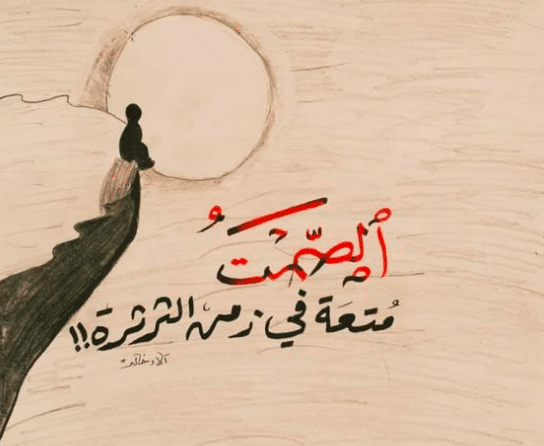 الصَّمْتُ
مُتعَة في زمن الثرثرة!!